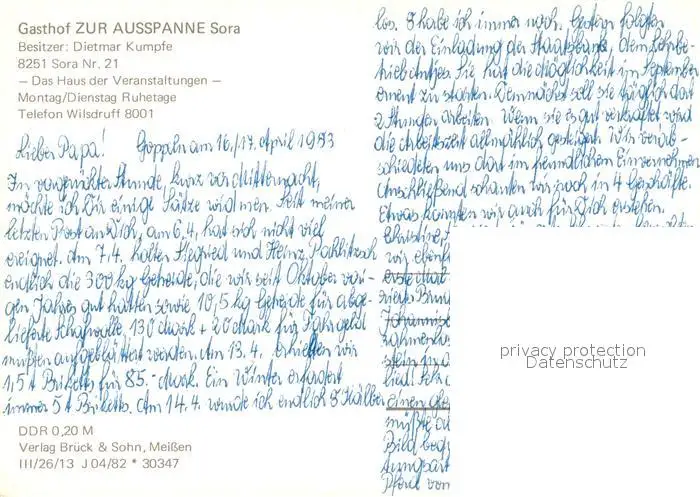 Gasthof ZUR AUSSPANNE Sora
Besitzer: Dietmar Kumpfe
8251 Sora Nr. 21
— Das Haus der Veranstaltungen —
Montag/Dienstag Ruhetage
Telefon Wilsdruff 8001
Lieber Papa! Göppeln am 16./17. April 1983
In vorgerückter Stunde, kurz vor Mitternacht,
möchte ich Dir einige Sätze widmen. Seit meiner
letzten Post an Dich, am 6.4. hat sich nicht viel
ereignet. Am 7.4. holten Siegfried und Heinz
endlich die 300 kg Getreide, die wir seit Oktober vori-
gen Jahres gut hatten sowie 10,5 kg Getreide für abge-
lieferte Schafwolle. 130 Mark + 20 Mark für Fahrgeld
mußten aufgeblättert werden. Am 13.4. erhielten wir
1,5 t Briketts für 85.- Mark. Ein Winter erfordert
immer 5 t Briketts. Am 14.4. wurde ich endlich 3 Kälber
DDR 0,20 M
Verlag Brück & Sohn, Meißen
III/26/13 J 04/82 * 30347
los. 8 habe ich immer noch. Gestern folgten
wir der Einladung der Staatsbank, dem Lehrbe-
trieb Antjes. Sie hat die Möglichkeit im September
erneut zu starten. Demnächst soll sie täglich dort
2 Stunden arbeiten. Wenn sie es gut verkraftet wird
die Arbeitszeit allmählich gesteigert. Wir verab-
schiedeten uns dort im freundlichen Einvernehmen
Anschließend schauten wir noch in 4 Geschäfte.
Etwas konnten wir auch für Dich erstehen.
Christine,
wir eben
erste
Johannis
rahmen
lied!
einen
müßte
Bild
Pfarr von
privacy protection
Datenschutz